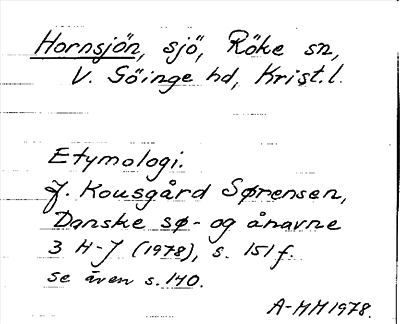 Hornsjön, sjö, Röke sn,
V. Göinge hd, Krist.l.
Etymologi.
J. Kousgård Sørensen,
Danske sø- og ånavne
3 H-J (1978), s. 151 f.
se även s. 140.
A-MM 1978.